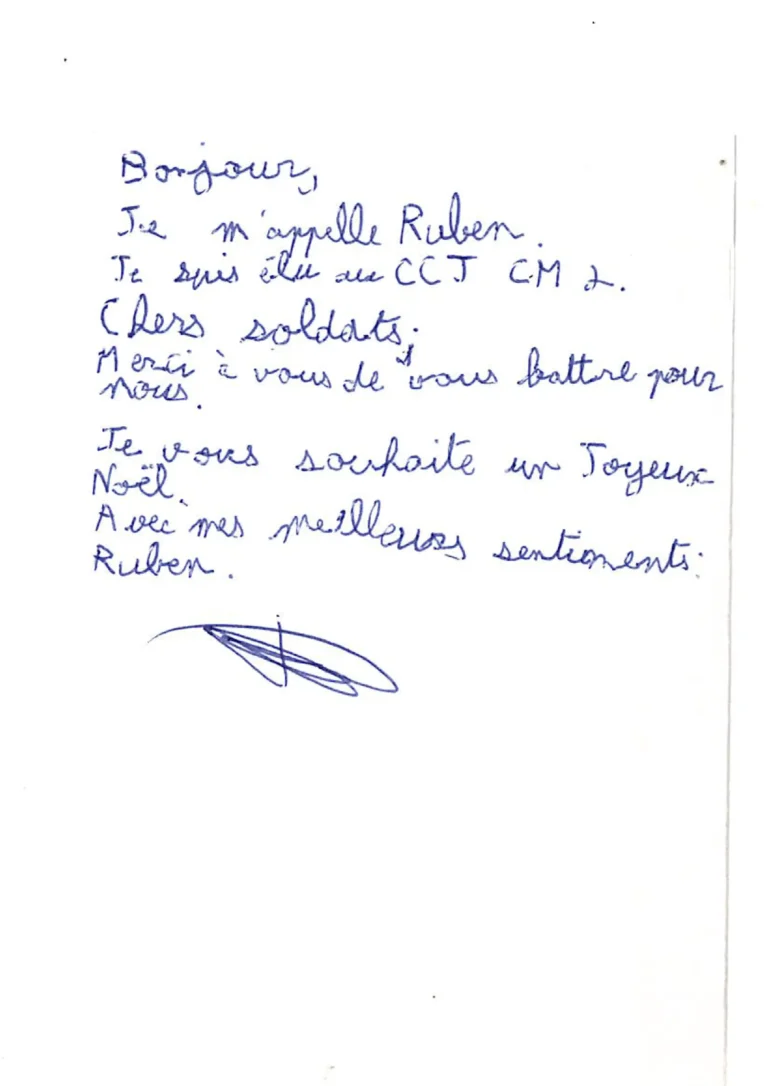 Bonjour,
Je m'appelle Ruben.
Je suis élu au CCJ CM 2.
Chers soldats,
Merci à vous de vous battre pour
nous.
Je vous souhaite un Joyeux
Noël.
Avec mes meilleurs sentiments.
Ruben.